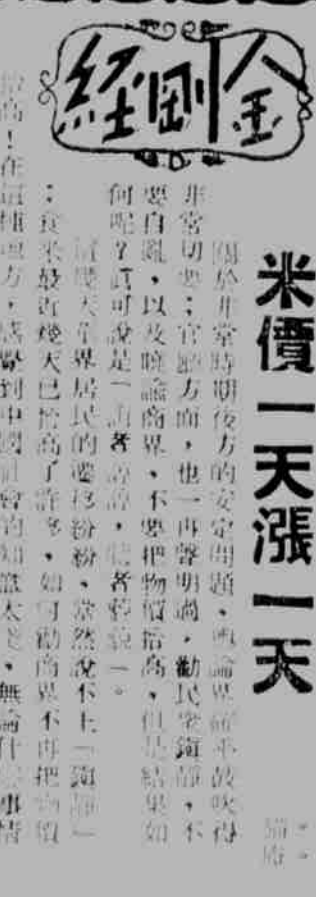 金剛經
米價一天漲一天
關於非常時期後方的安定問題、輿論界確乎鼓吹得
非常切要；官廳方面，也一再聲明過，勸民眾鎮靜，不
要自亂，以及曉諭商界、不要把物價抬高，但是結果如
何呢？眞可說是「者諄諄，聽者藐藐」。
這幾天界居民的遷移紛紛、當然說不上「鎮靜」
；食米最近幾天已抬高了許多，如何勸商界不再把物價
抬高！在這種地方，感覺到中國社會的知識太淺，無論什麼事情